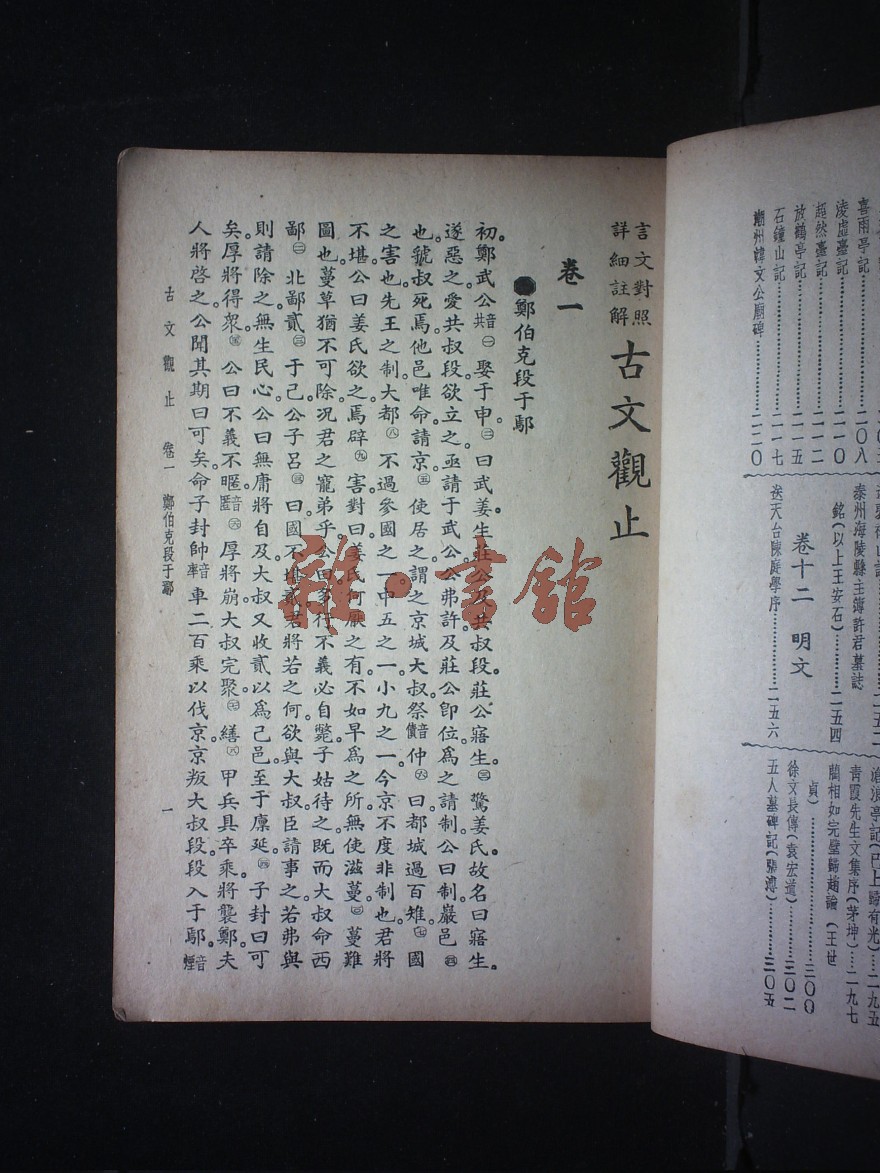 喜雨亭記……二〇八
凌虛臺記……二一〇
超然臺記……二一二
放鶴亭記……二一五
石鐘山記……二一七
潮州韓文公廟碑……二二〇
泰州海陵縣主簿許君墓誌
銘(以上王安石)……二五四
卷十二 明文
送天台陳庭學序……二五六
滄浪亭記(以上歸有光)……二九五
青霞先生文集序(茅坤)……二九七
藺相如完璧歸趙論(王世
貞)……三〇〇
徐文長傳(袁宏道)……三〇二
五人墓碑記(張溥)……三〇五
言文對照
詳細註解
古文觀止
卷一
●鄭伯克段于鄢
初。鄭武公音共㊀娶于申。㊁曰武姜。生莊公及共叔段。莊公寤生。㊂驚姜氏。故名曰寤生。
遂惡之。愛共叔段。欲立之。亟請于武公。公弗許。及莊公卽位。爲之請制。公曰。制巖邑㊃
也。虢叔死焉。他邑唯命。請京。㊄使居之。謂之京城大叔。祭音債仲㊅曰。都城過百雉。㊆國
之害也。先王之制。大都㊇不過參國之一。中五之一。小九之一。今京不度。非制也。君將
不堪。公曰。姜氏欲之。焉辟㊈害。對曰。姜氏何厭之有。不如早爲之所。無使滋蔓。㊉蔓難
圖也。蔓草猶不可除。况君之寵弟乎。公曰。多行不義必自斃。子姑待之。旣而大叔命西
鄙㊁北鄙貳㊂于己。公子呂㊂曰。國不堪貳。君將若之何。欲與大叔。臣請事之。若弗與。
則請除之。無生民心。公曰。無庸。將自及。大叔又收貳以爲己邑。至于廩延。㊃子封曰。可
矣。厚將得衆。公曰。不義不暱。音匿厚將崩。大叔完聚。繕甲兵。具卒乘。將襲鄭。夫
人將啓之。公聞其期。曰。可矣。命子封帥音率車二百乘以伐京。京叛大叔段。段入于鄢。音煙
古文觀止 卷一 鄭伯克段于鄢
一
雜·書館